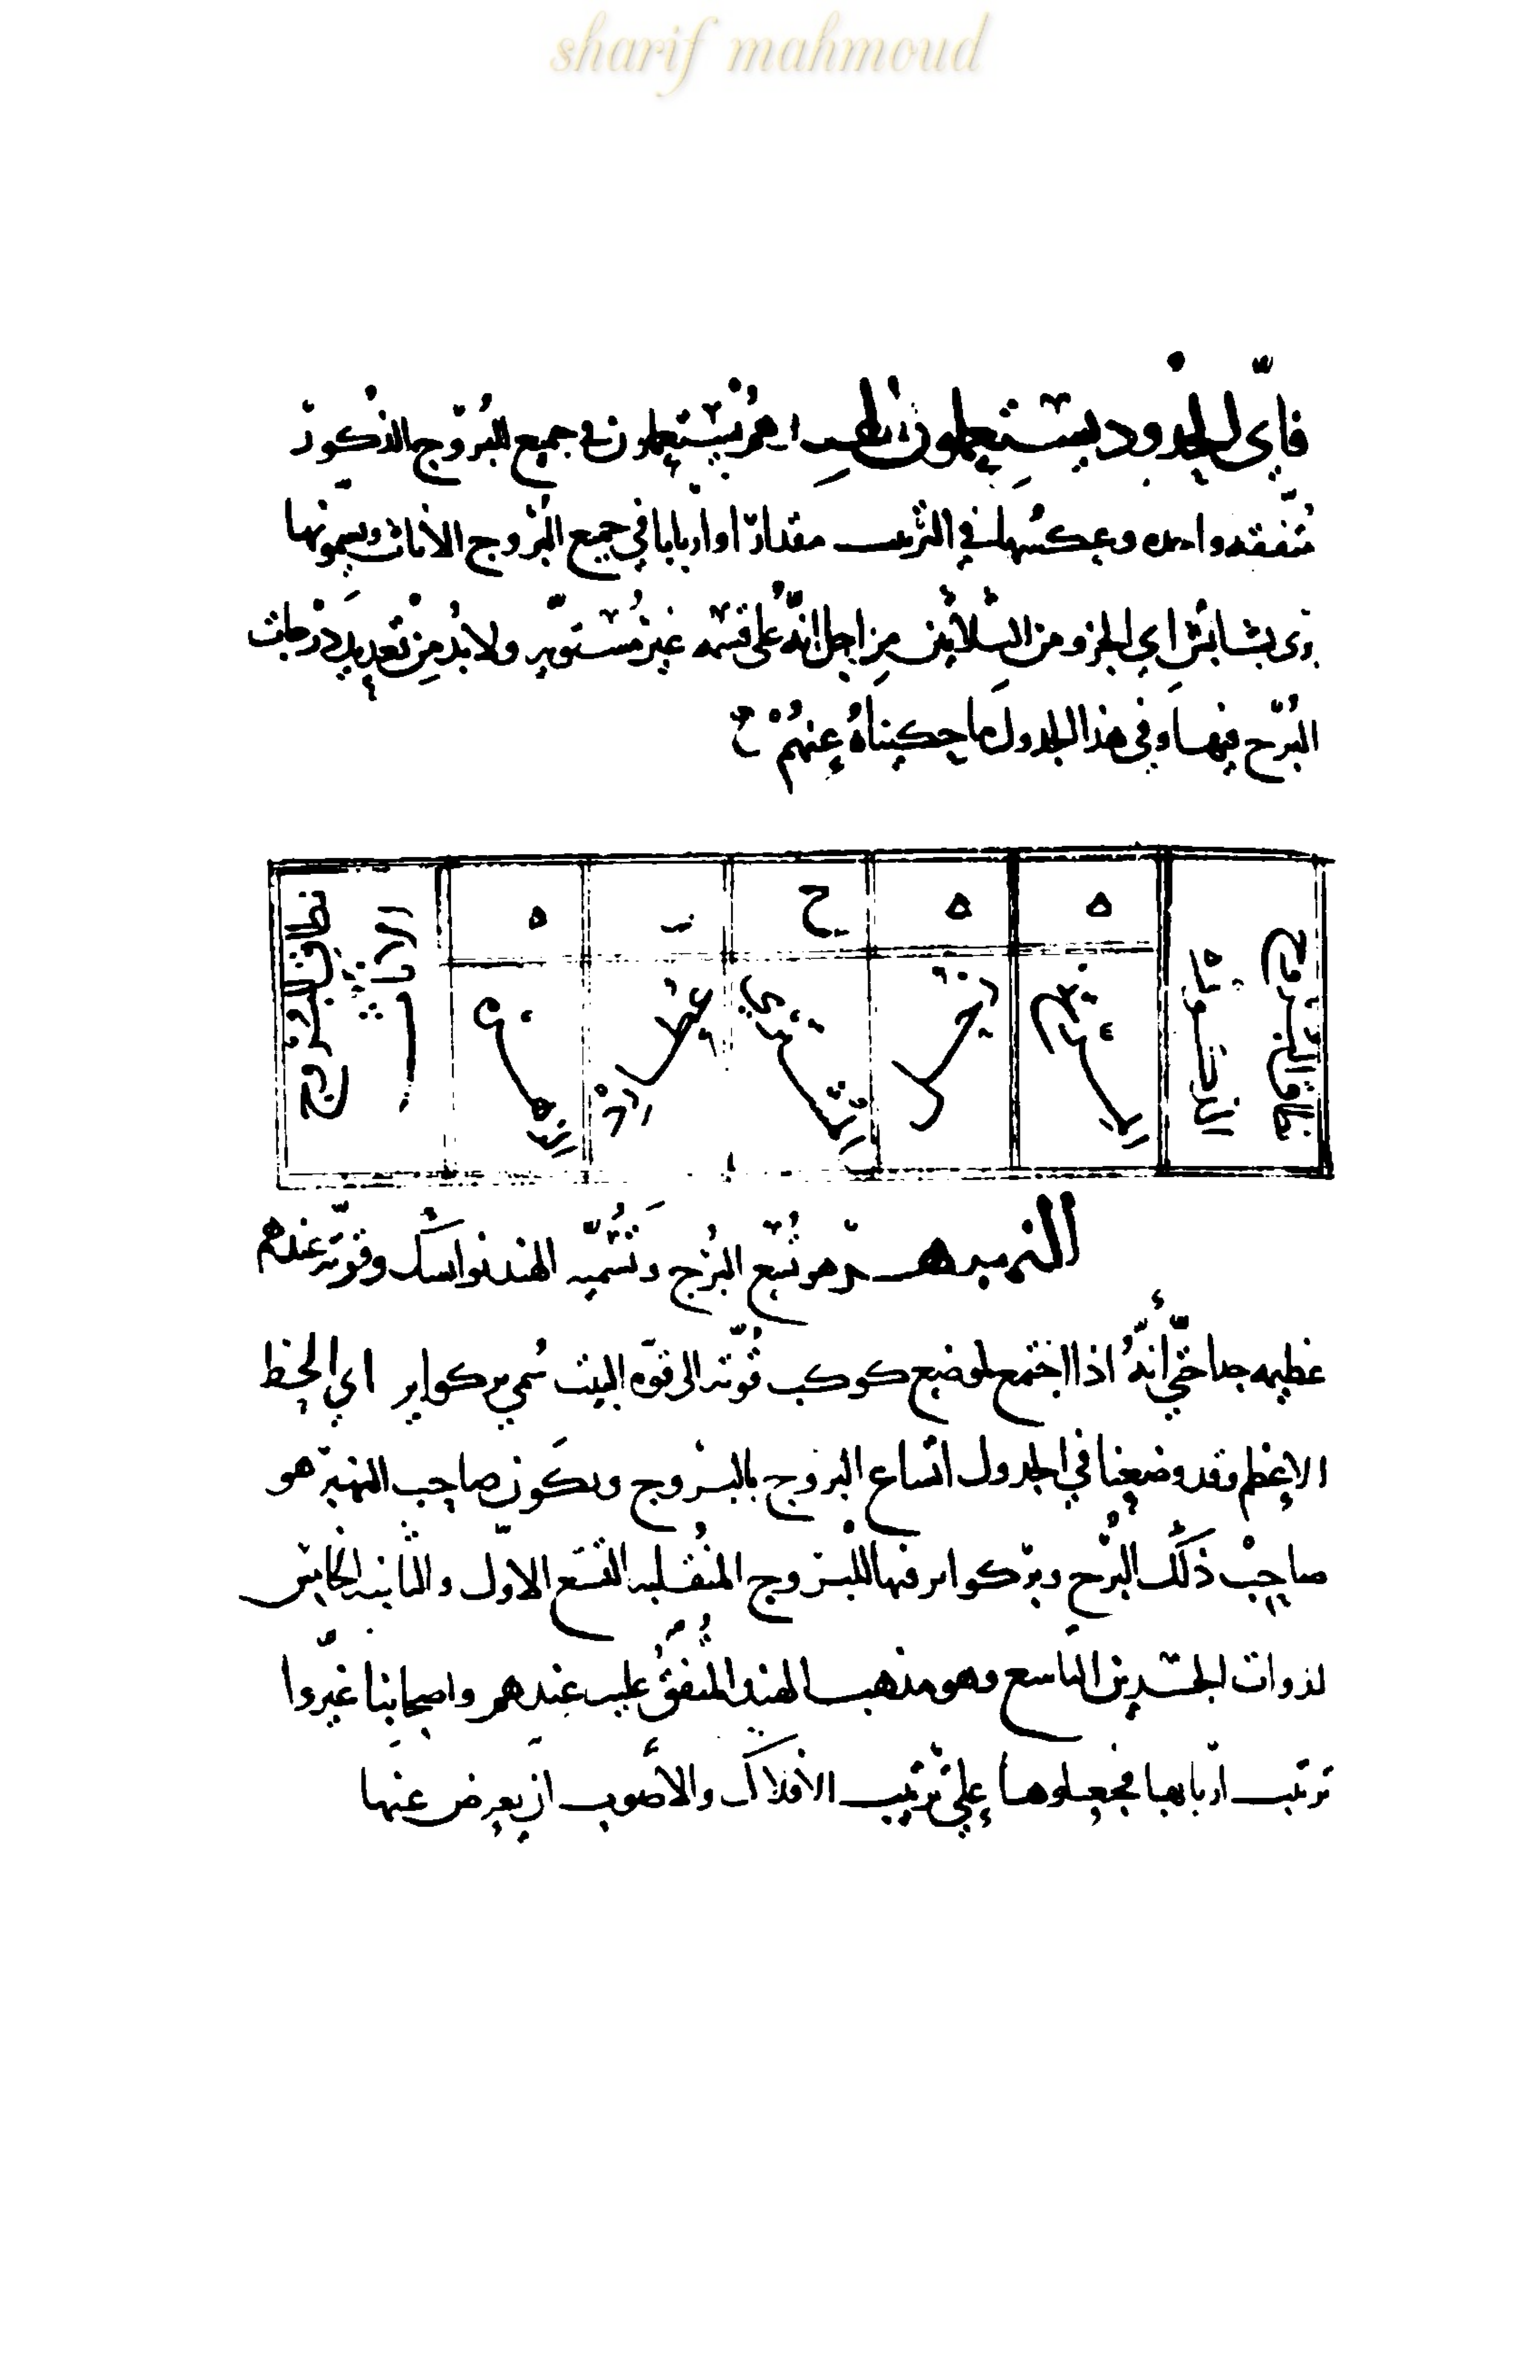 sharif mahmoud
فاىّ الحدود يستعملون الهند هم يستعملون فى جميع البروج الذكور
متّفقه واحده وعكسها فى الترتيب مقدارا واربابا في جميع البروج الاناث ويسمونها
اي الجزو من الثلاثين من اجل انّه على قسمه غير مستوية ولا بُد من تعديل درجات
البُرج فيها وفي هذا الجدول ما حكيناهُ عنهُم
نطاق البروج الذكورة
ه
المريخ
ه
زحل
ح
المشتري
ز
عطارد
ه
الزهره
نطاق البروج الاناث
النهبهر هو تُسع البُرج وتُسمّيه الهند نوانشك وقوّته عندهم
عظيمه جدا حتّى أنّهُ اذا اجتمع لموضع كوكب قُوّته الى قوّه البيت سُمي بركوابر اي الحظ
الاعظم وقد وضعنا في الجدول اتساع البروج بالبروج ويكون صاحب النهبهر هو
صاحب ذلك البُرج وبركوابر فيها للبروج المنُقلبه التسع الاوّل وللثابته الخامس
لذوات الجسدين التاسع وهو مذهب الهند المتُفقُ عليه عندهم واصحابنا غيّروا
ترتيب اربابها فجعلوها على ترتيب الأفلاك والأصوب ان يعرض عنها